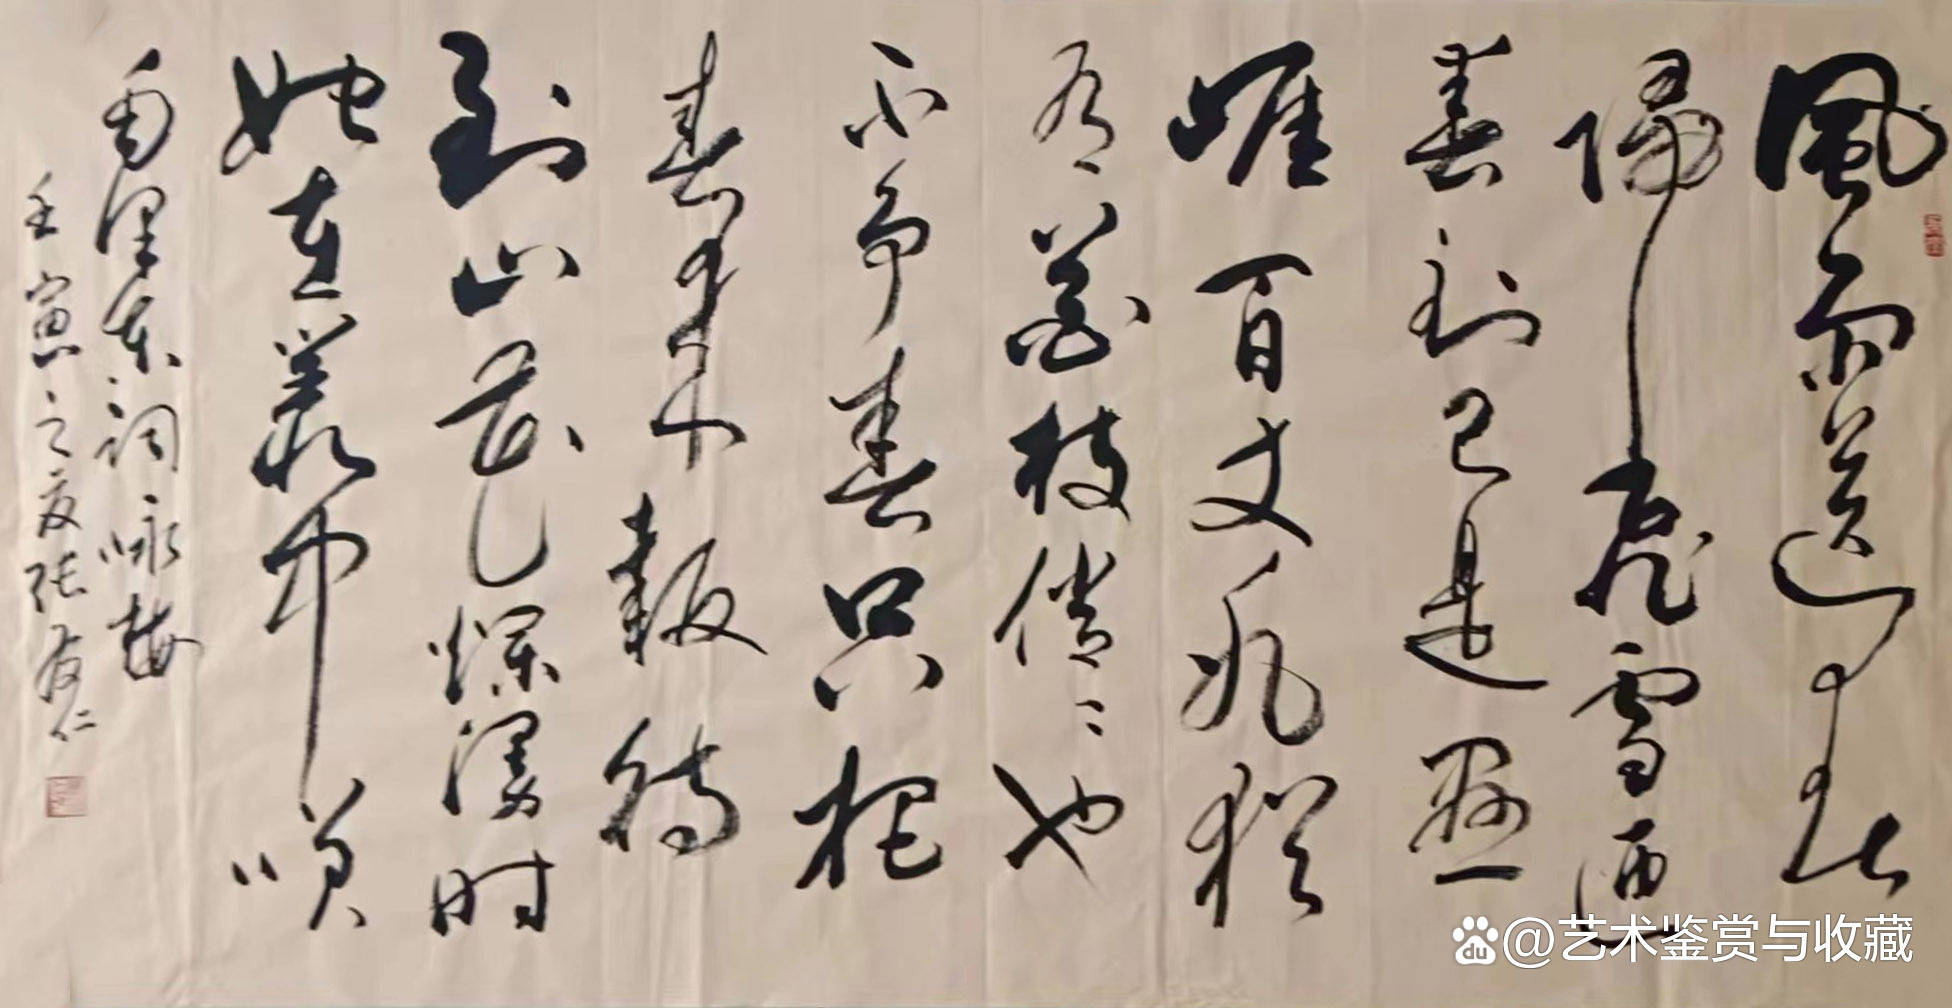 風雨送春
歸飛雪迎
春到已是懸
崖百丈冰猶
有花枝俏〻也
不争春只把
春來報待
到山花爛漫时
她在叢中笑
毛泽东词咏梅
壬寅之夏张友仁
du @艺术鉴赏与收藏